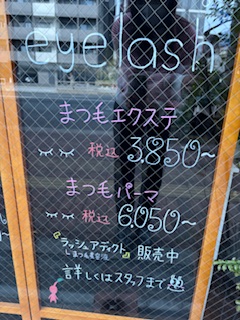 eyelash
まつ毛エクステ
税込 3,850~
まつ毛パーマ
税込 6,050~
ラッシュアディクト 販売中
まつ毛美容液
詳しくはスタッフまで